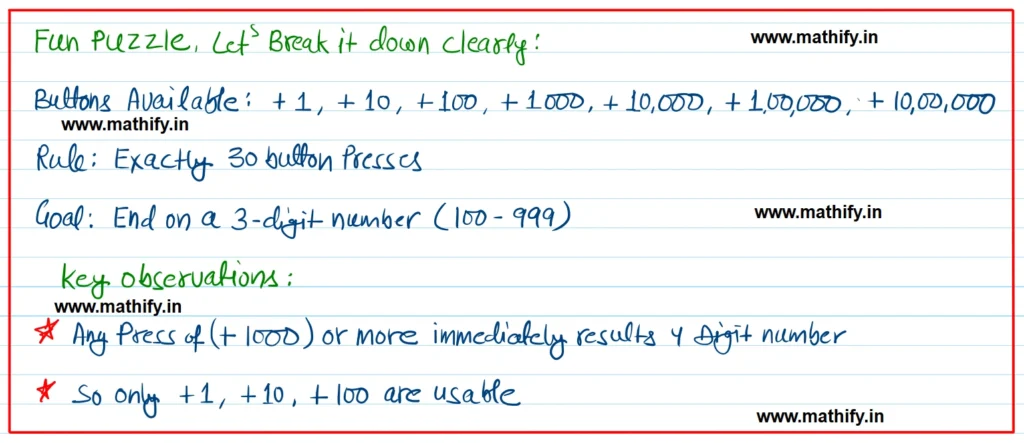 Fun Puzzle, Let's Break it down clearly:
www.mathify.in
Buttons Available: +1, +10, +100, +1000, +10,000, +1,00,000, +10,00,000
www.mathify.in
Rule: Exactly 30 button Presses
Goal: End on a 3-digit number (100-999)
www.mathify.in
Key observations:
www.mathify.in
* Any Press of (+1000) or more immediately results 4 Digit number
* So only +1, +10, +100 are usable
www.mathify.in